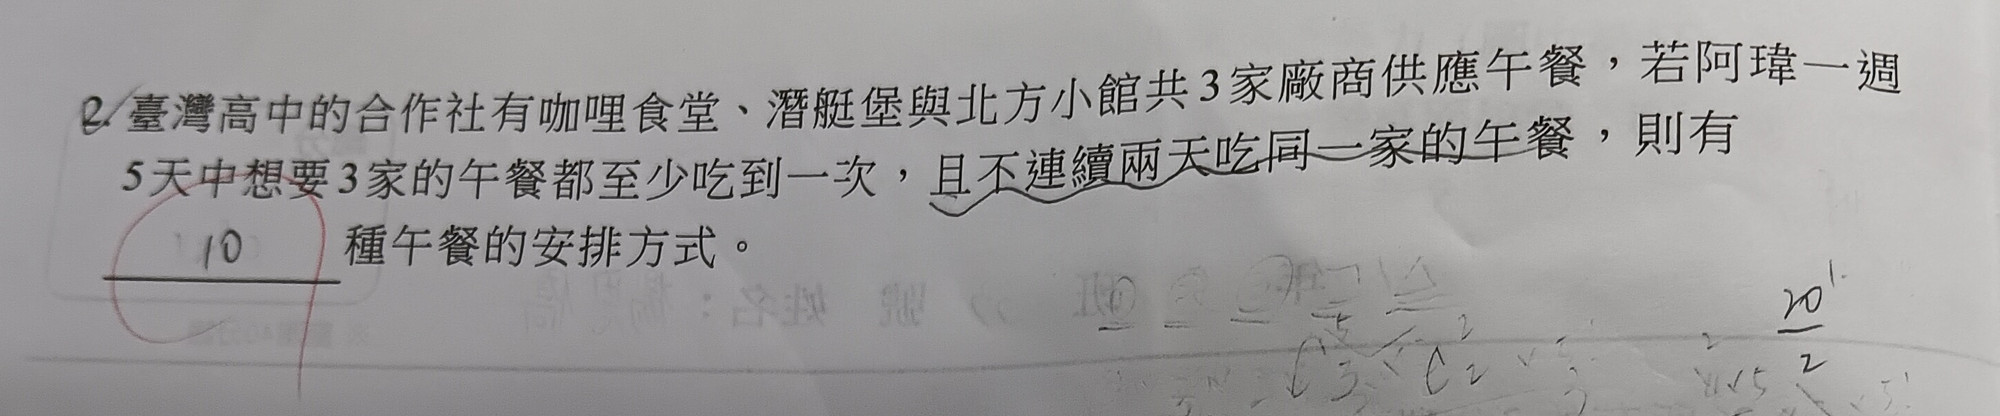 2. 臺灣高中的合作社有咖哩食堂、潛艇堡與北方小館共3家廠商供應午餐，若阿瑋一週
5天中想要3家的午餐都至少吃到一次，且不連續兩天吃同一家的午餐，則有
10 種午餐的安排方式。
20
2